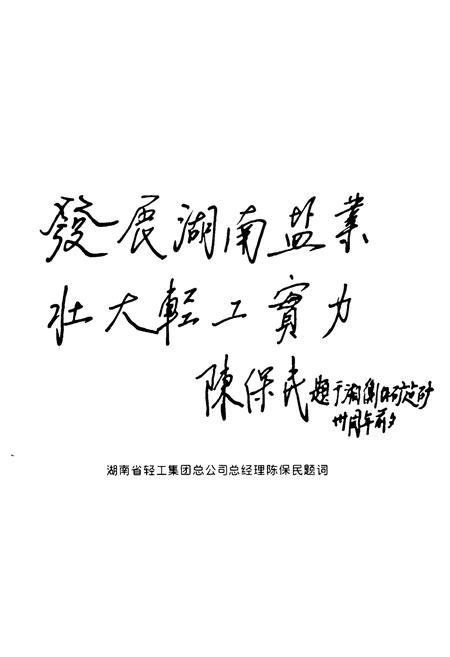 發展湖南盐業
壯大輕工實力
陳保民 題于湘衡盐矿建矿
卅周年前夕
湖南省轻工集团总公司总经理陈保民题词